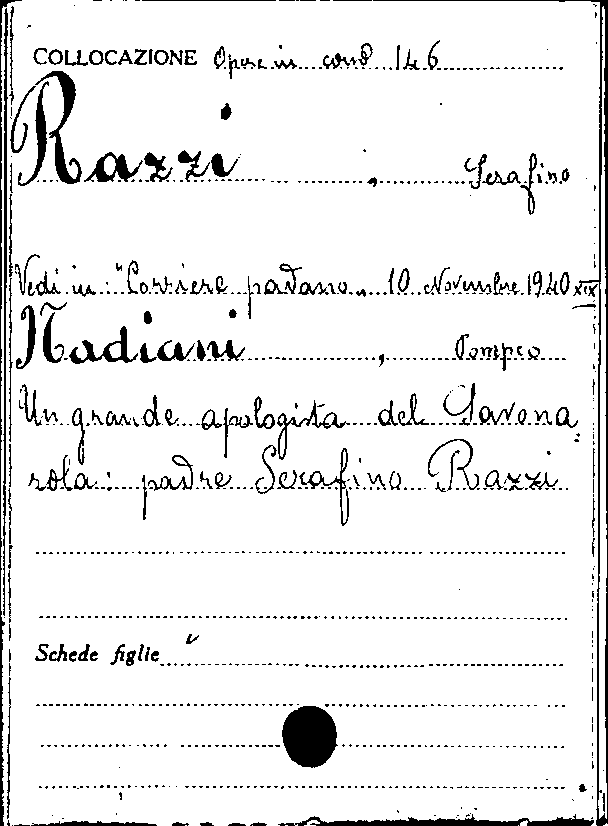 COLLOCAZIONE Opere in cons 146
Razzi, Serafino
Vedi in: "Corriere padano„ 10 Novembre 1940 XIX
Nadiani, Pompeo
Un grande apologista del Savona
rola: padre Serafino Razzi
Schede figlie